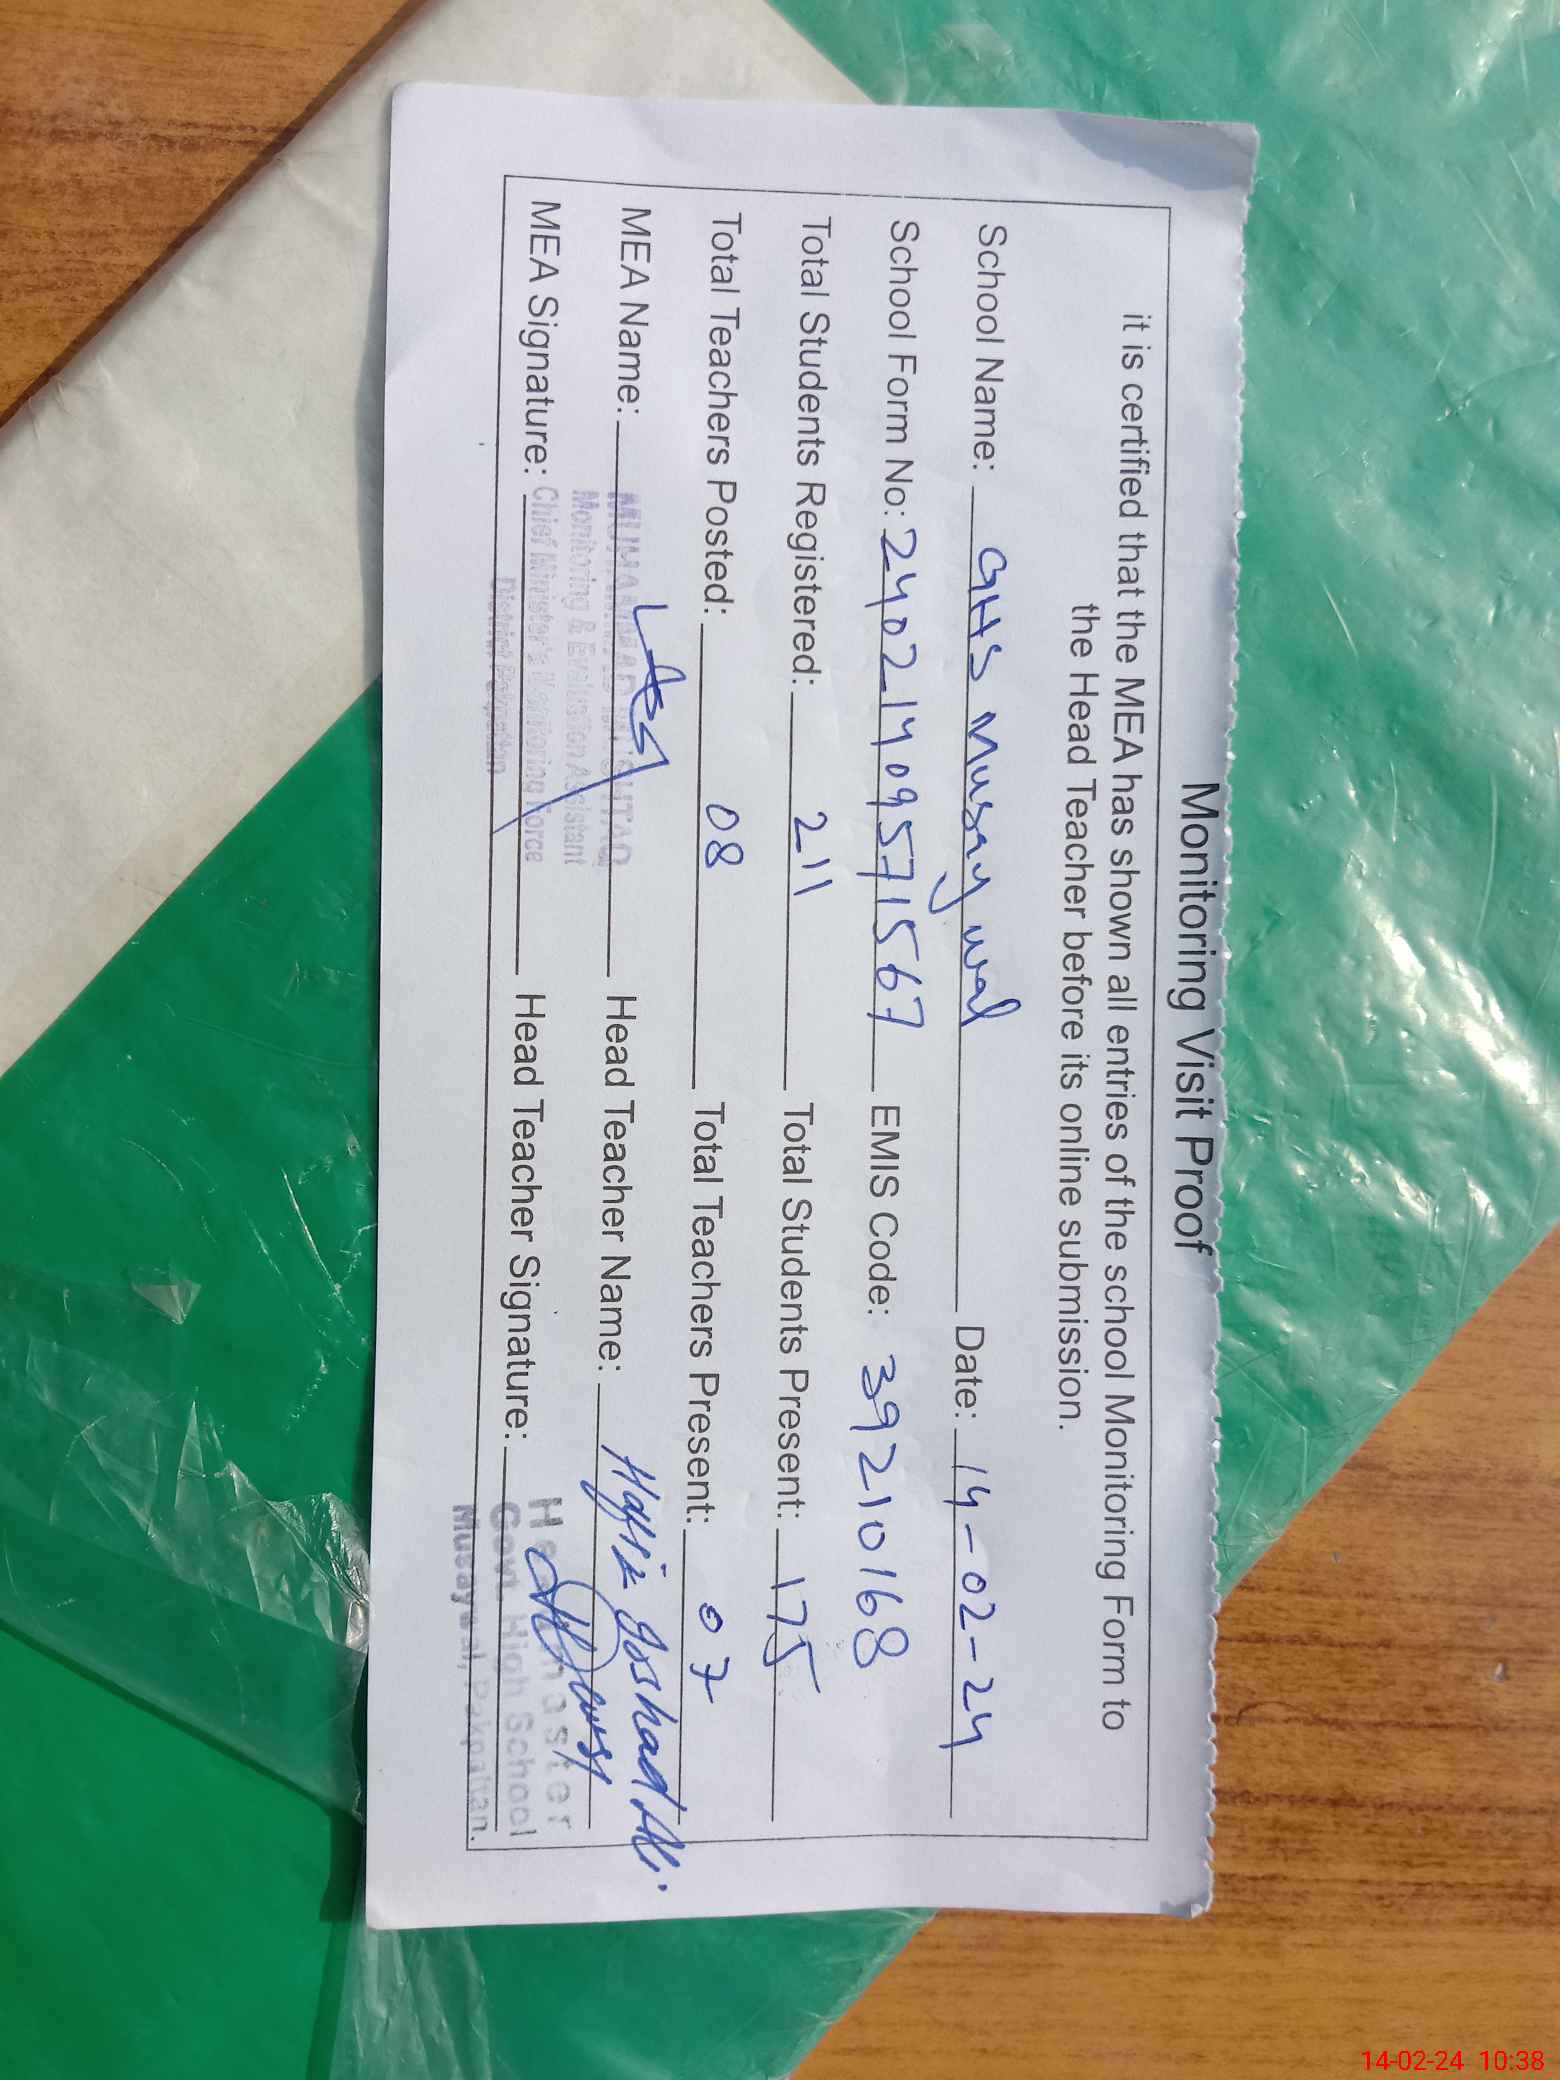 Monitoring Visit Proof
it is certified that the MEA has shown all entries of the school Monitoring Form to
the Head Teacher before its online submission.
School Name: GHS Musaywal Date: 14-02-24
School Form No: 24021409571567 EMIS Code: 39210168
Total Students Registered: 211 Total Students Present: 175
Total Teachers Posted: 08 Total Teachers Present: 07
MEA Name: MUHAMMAD MUSHTAQ Head Teacher Name: Hafiz Irshad Ali.
Monitoring & Evaluation Assistant
MEA Signature: Chief Minister's Monitoring Force Head Teacher Signature: Headmaster
District Pakpattan
Govt. High School
Musaywal, Pakpattan.
14-02-24 10:38